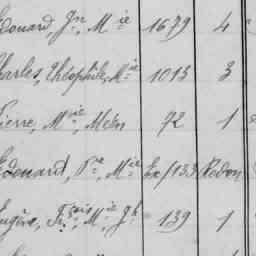 Edouard, Jn, Mie 1679 4
Charles, Théophile, Mie 1013 3
Pierre, Mie, Melon 72 1
Edouard, Pre, Mie Ex/133 Redon
Eugène, Frçois, Mie, Gh 139 1